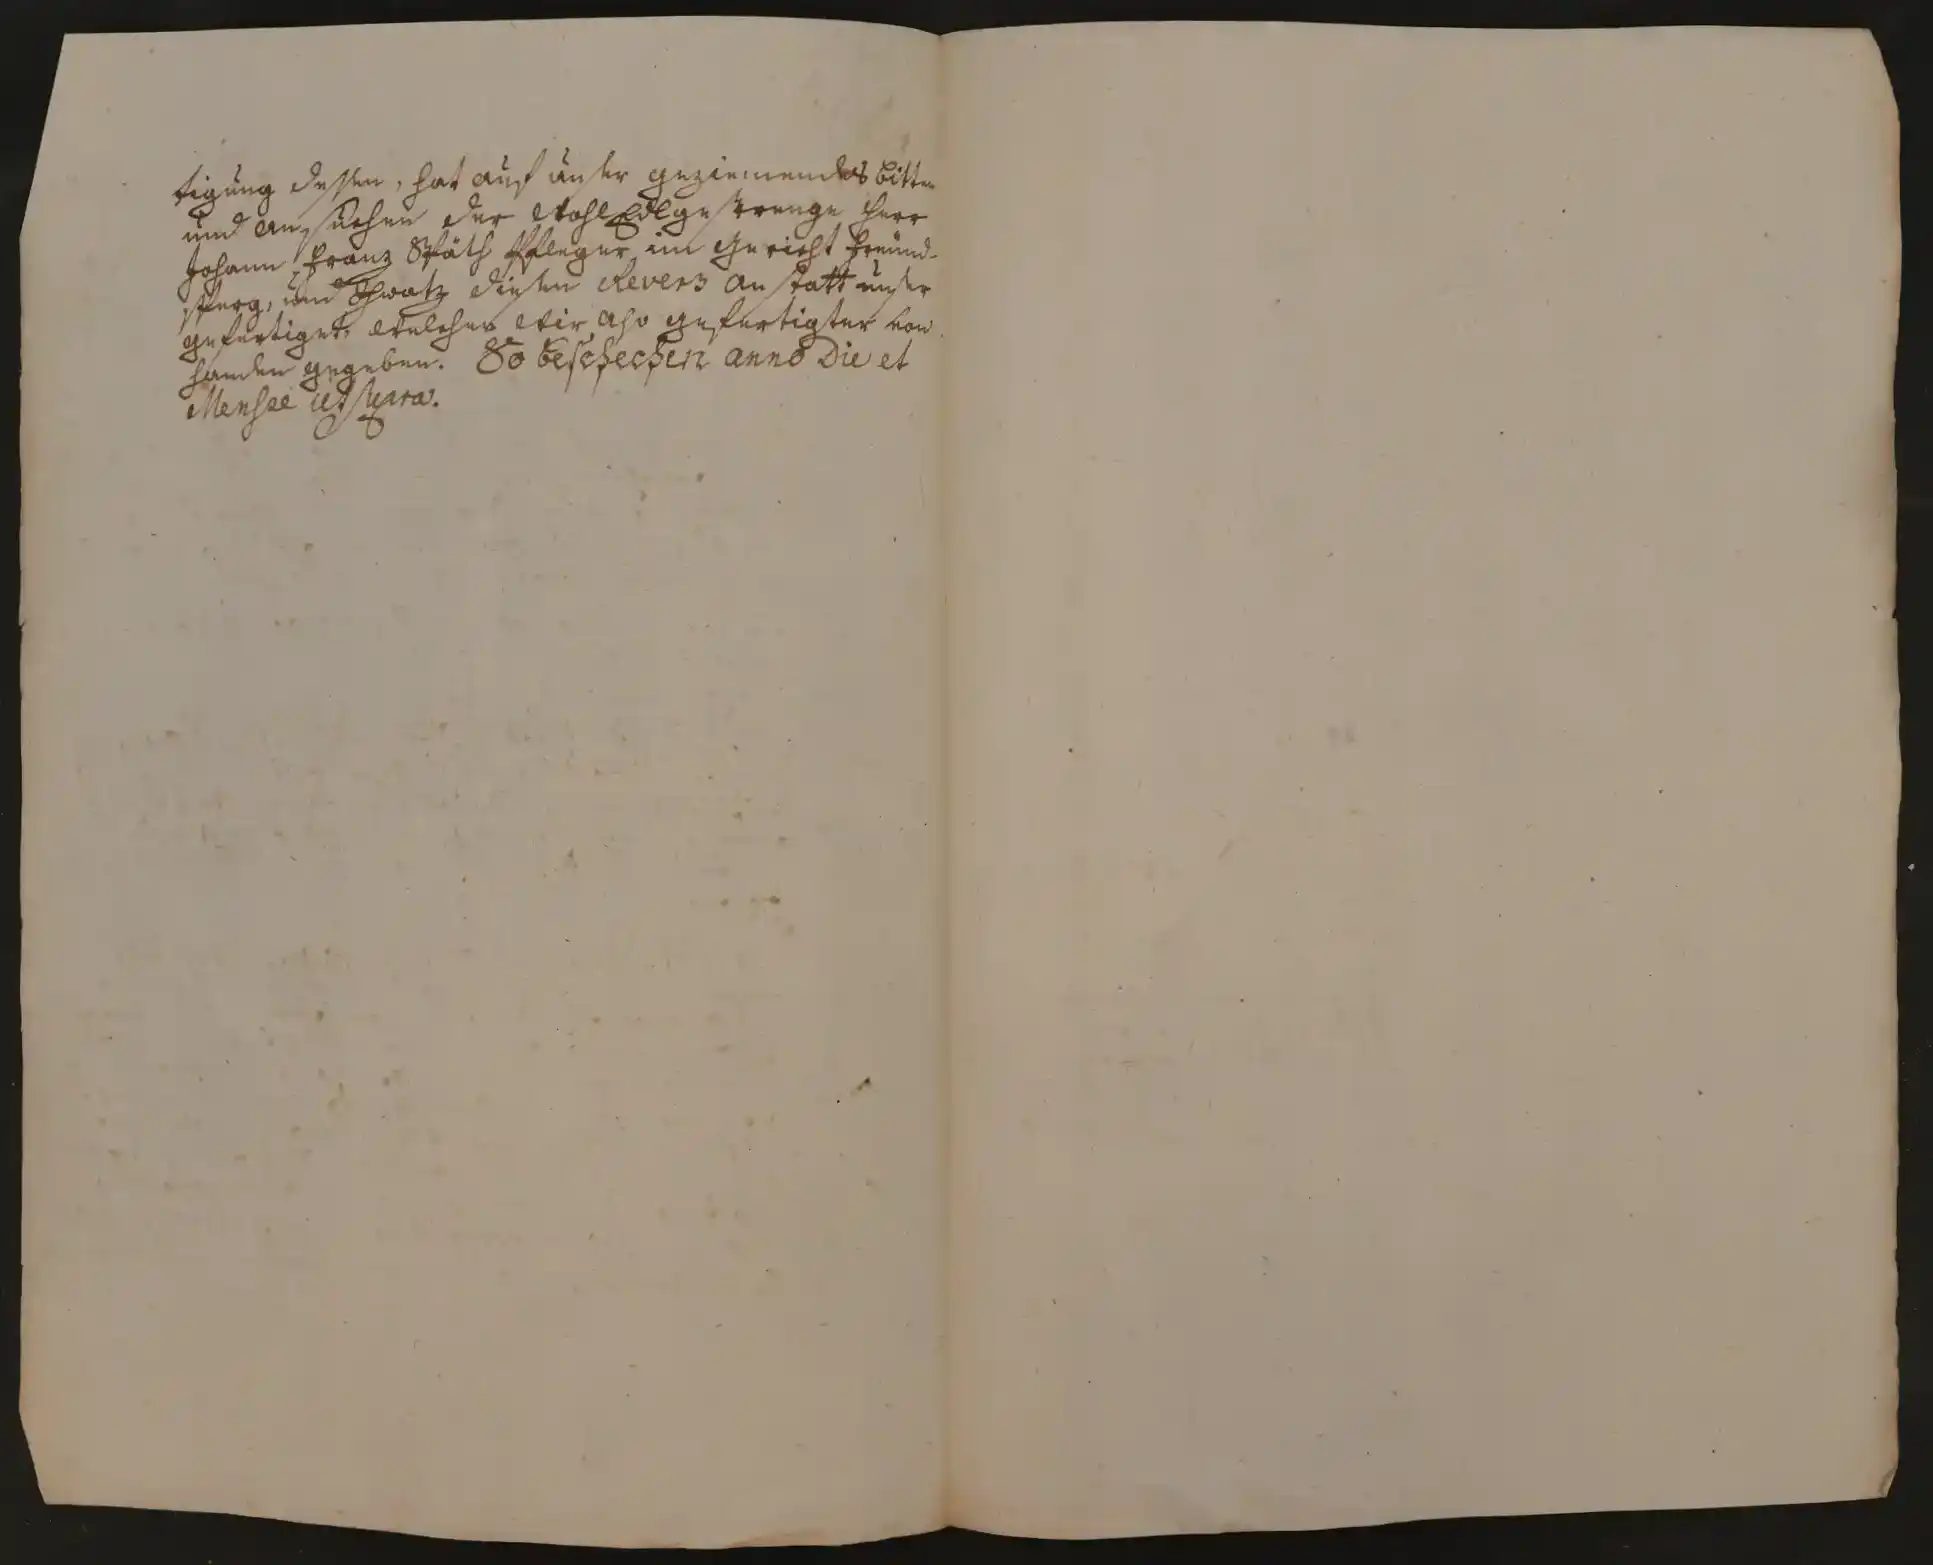 tigung dessen, hat auf unser geziemendes bitten
und ansuchen der WohlEdlgestrenge Herr
Johann Franz Späth Pfleger im Gericht Freünd-
sperg, und Schwatz diesen Revers anstatt unser
gefertiget, welchen wir also gefertigter von
handen gegeben. So beschechen anno Die et
Mense ut supra.